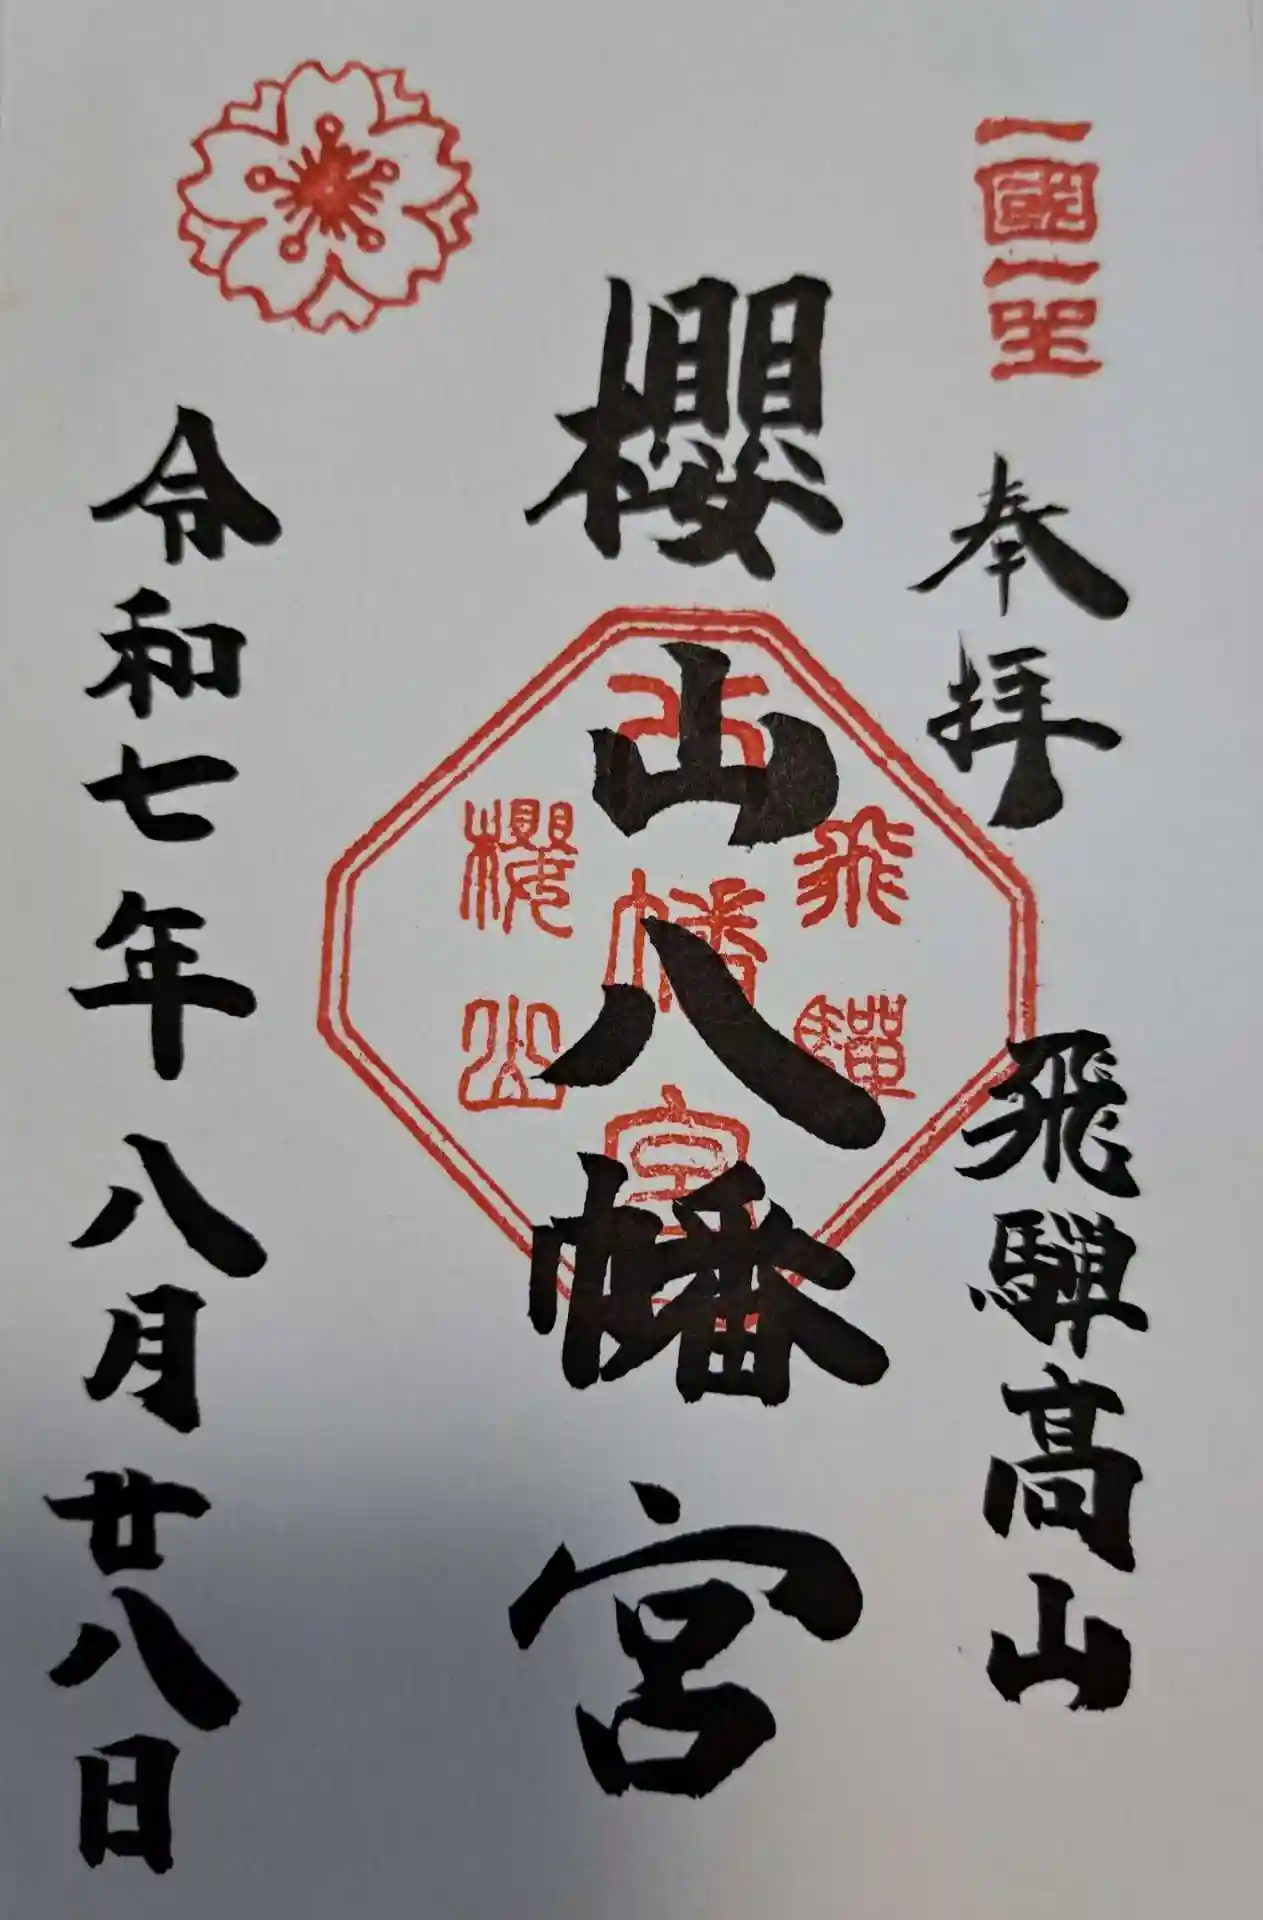 一國一社
奉拝
飛騨高山
櫻山八幡宮
飛驒
八幡宮
櫻山
令和七年八月廿八日